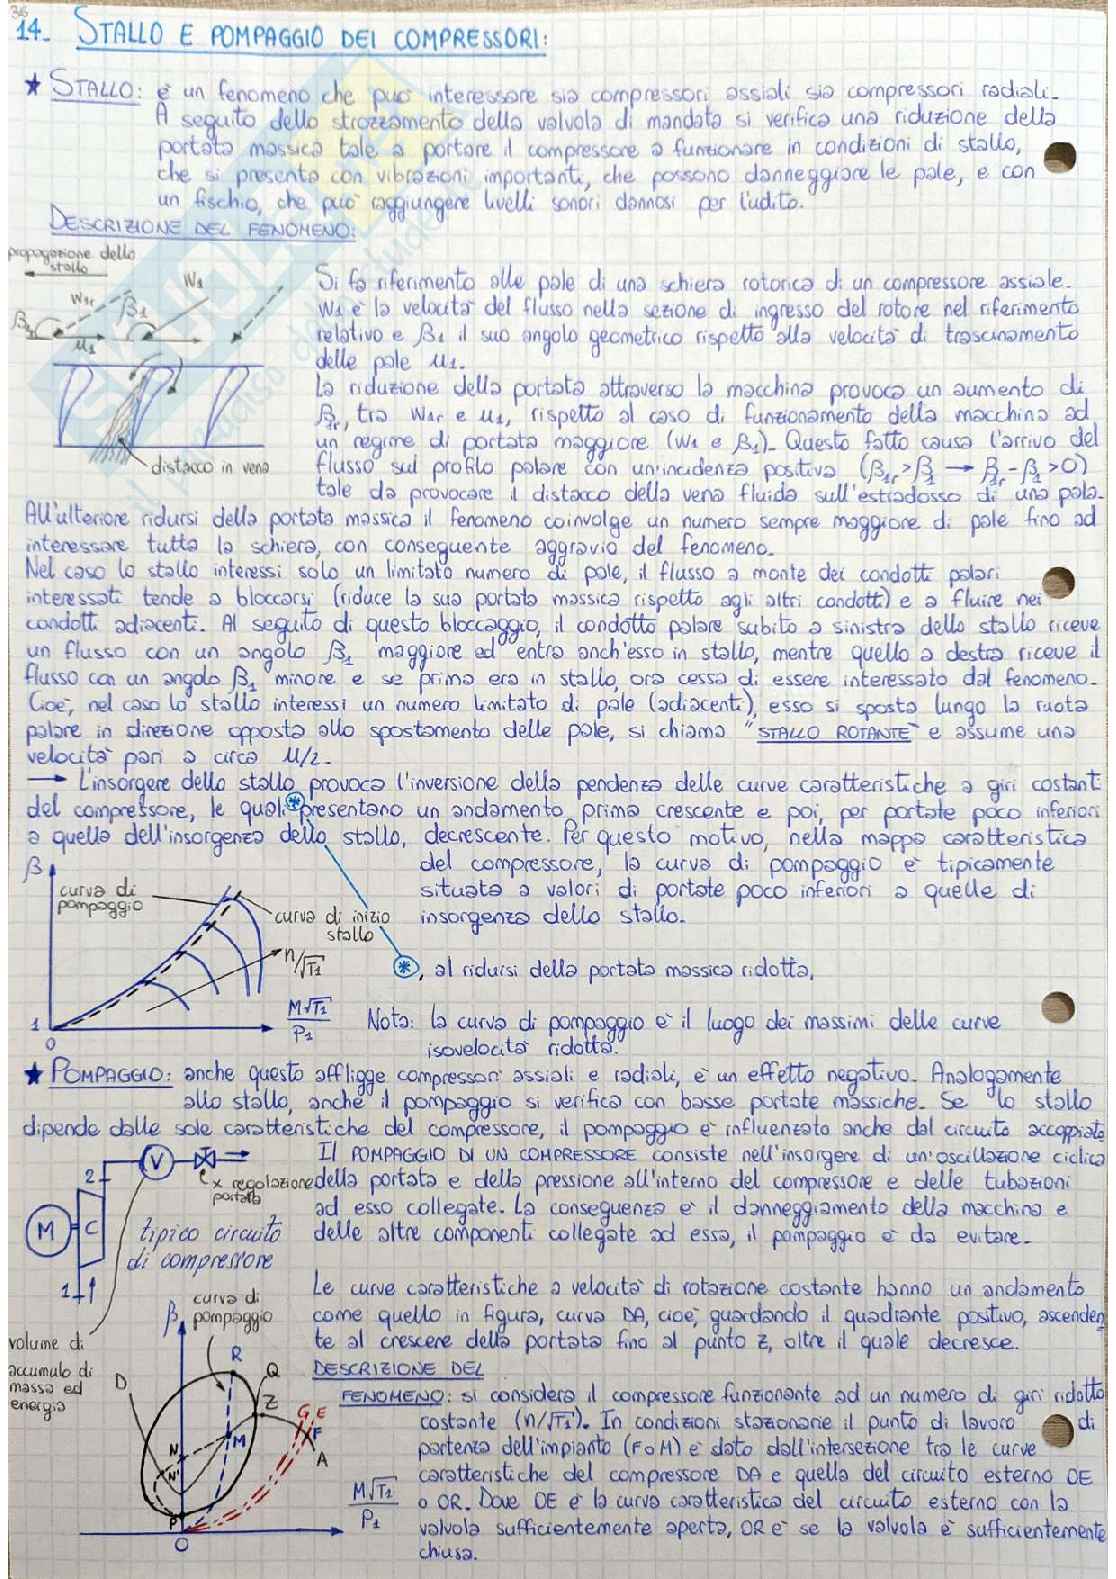 36
14- STALLO E POMPAGGIO DEI COMPRESSORI:
★ STALLO: è un fenomeno che può interessare sia compressori assiali sia compressori radiali.
A seguito dello strozzamento della valvola di mandata si verifica una riduzione della
portata massica tale a portare il compressore a funzionare in condizioni di stallo,
che si presenta con vibrazioni importanti, che possono danneggiare le pale, e con
un fischio, che può raggiungere livelli sonori dannosi per l'udito.
DESCRIZIONE DEL FENOMENO:
propagazione dello
stallo
W1r
β1
W1
β1r
u1
distacco in vena
Si fa riferimento alle pale di una schiera rotorica di un compressore assiale.
W1 è la velocità del flusso nella sezione di ingresso del rotore nel riferimento
relativo e β1 il suo angolo geometrico rispetto alla velocità di trascinamento
delle pale u1.
La riduzione della portata attraverso la macchina provoca un aumento di
β1r, tra W1r e u1, rispetto al caso di funzionamento della macchina ad
un regime di portata maggiore (W1 e β1). Questo fatto causa l'arrivo del
flusso sul profilo palare con un'incidenza positiva (β1r > β1 → β1r - β1 > 0)
tale da provocare il distacco della vena fluida sull'estradosso di una pala.
All'ulteriore ridursi della portata massica il fenomeno coinvolge un numero sempre maggiore di pale fino ad
interessare tutta la schiera, con conseguente aggravio del fenomeno.
Nel caso lo stallo interessi solo un limitato numero di pale, il flusso a monte dei condotti palari
interessati tende a bloccarsi (riduce la sua portata massica rispetto agli altri condotti) e a fluire nei
condotti adiacenti. Al seguito di questo bloccaggio, il condotto palare subito a sinistra dello stallo riceve
un flusso con un angolo β1 maggiore ed entra anch'esso in stallo, mentre quello a destra riceve il
flusso con un angolo β1 minore e se prima era in stallo, ora cessa di essere interessato dal fenomeno.
Cioè, nel caso lo stallo interessi un numero limitato di pale (adiacenti), esso si sposta lungo la ruota
palare in direzione opposta allo spostamento delle pale, si chiama "STALLO ROTANTE" e assume una
velocità pari a circa u/2.
→ L'insorgere dello stallo provoca l'inversione della pendenza delle curve caratteristiche a giri costanti
del compressore, le quali * presentano un andamento prima crescente e poi, per portate poco inferiori
a quella dell'insorgenza dello stallo, decrescente. Per questo motivo, nella mappa caratteristica
del compressore, la curva di pompaggio è tipicamente
situata a valori di portate poco inferiori a quelle di
insorgenza dello stallo.
β
curva di
pompaggio
curva di inizio
stallo
n/√T1
M√T1
P1
1
0
*, al ridursi della portata massica ridotta,
Nota: la curva di pompaggio è il luogo dei massimi delle curve
isovelocità ridotta.
★ POMPAGGIO: anche questo affligge compressori assiali e radiali, è un effetto negativo. Analogamente
allo stallo, anche il pompaggio si verifica con basse portate massiche. Se lo stallo
dipende dalle sole caratteristiche del compressore, il pompaggio è influenzato anche dal circuito accoppiato
V
2
x regolazione
portata
M
C
1
tipico circuito
di compressore
Il POMPAGGIO DI UN COMPRESSORE consiste nell'insorgere di un'oscillazione ciclica
della portata e della pressione all'interno del compressore e delle tubazioni
ad esso collegate. La conseguenza è il danneggiamento della macchina e
delle altre componenti collegate ad essa, il pompaggio è da evitare.
Le curve caratteristiche a velocità di rotazione costante hanno un andamento
come quello in figura, curva DA, cioè, guardando il quadrante positivo, ascenden
te al crescere della portata fino al punto Z, oltre il quale decresce.
volume di
accumulo di
massa ed
energia
β
curva di
pompaggio
R
Q
D
Z
G E
F
M
A
N
N'
P
O
M√T1
P1
DESCRIZIONE DEL
FENOMENO: si considera il compressore funzionante ad un numero di giri ridotto
costante (n/√T1). In condizioni stazionarie il punto di lavoro di
partenza dell'impianto (F o M) è dato dall'intersezione tra le curve
caratteristiche del compressore DA e quella del circuito esterno OE
o OR. Dove OE è la curva caratteristica del circuito esterno con la
valvola sufficientemente aperta, OR è se la valvola è sufficientemente
chiusa.